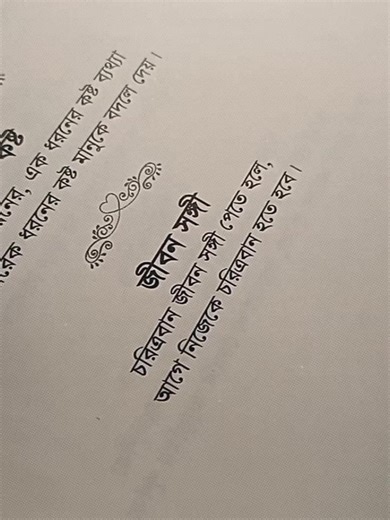 কষ্ট
নের, এক ধরনের কষ্ট ব্যথ্যা
রেক ধরনের কষ্ট মানুকে বদলে দেয়।
জীবন সঙ্গী
চরিত্রবান জীবন সঙ্গী পেতে হলে,
আগে নিজেকে চরিত্রবান হতে হবে।